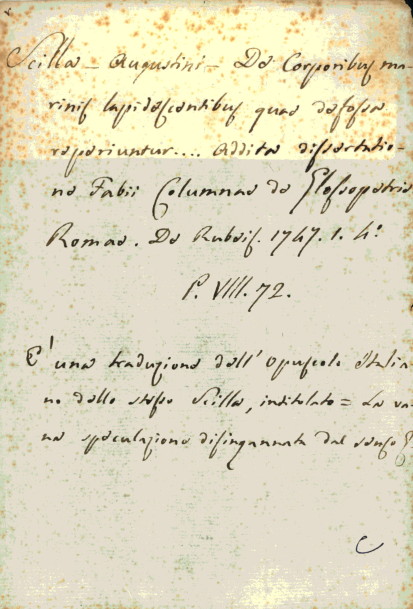 Scilla - Augustini - De Corporibus ma-
rinis lapidescentibus quae defossa
reperiuntur.... Addita dissertatio-
ne Fabii Columnae de Glossopetris
Romae. De Rubeis. 1747. 1. 4.º
P. VIII. 72.
E' una traduzione dell' opuscolo Italia
no dello stesso Scilla, intitolato = La va
na speculazione disingannata dal senso
C